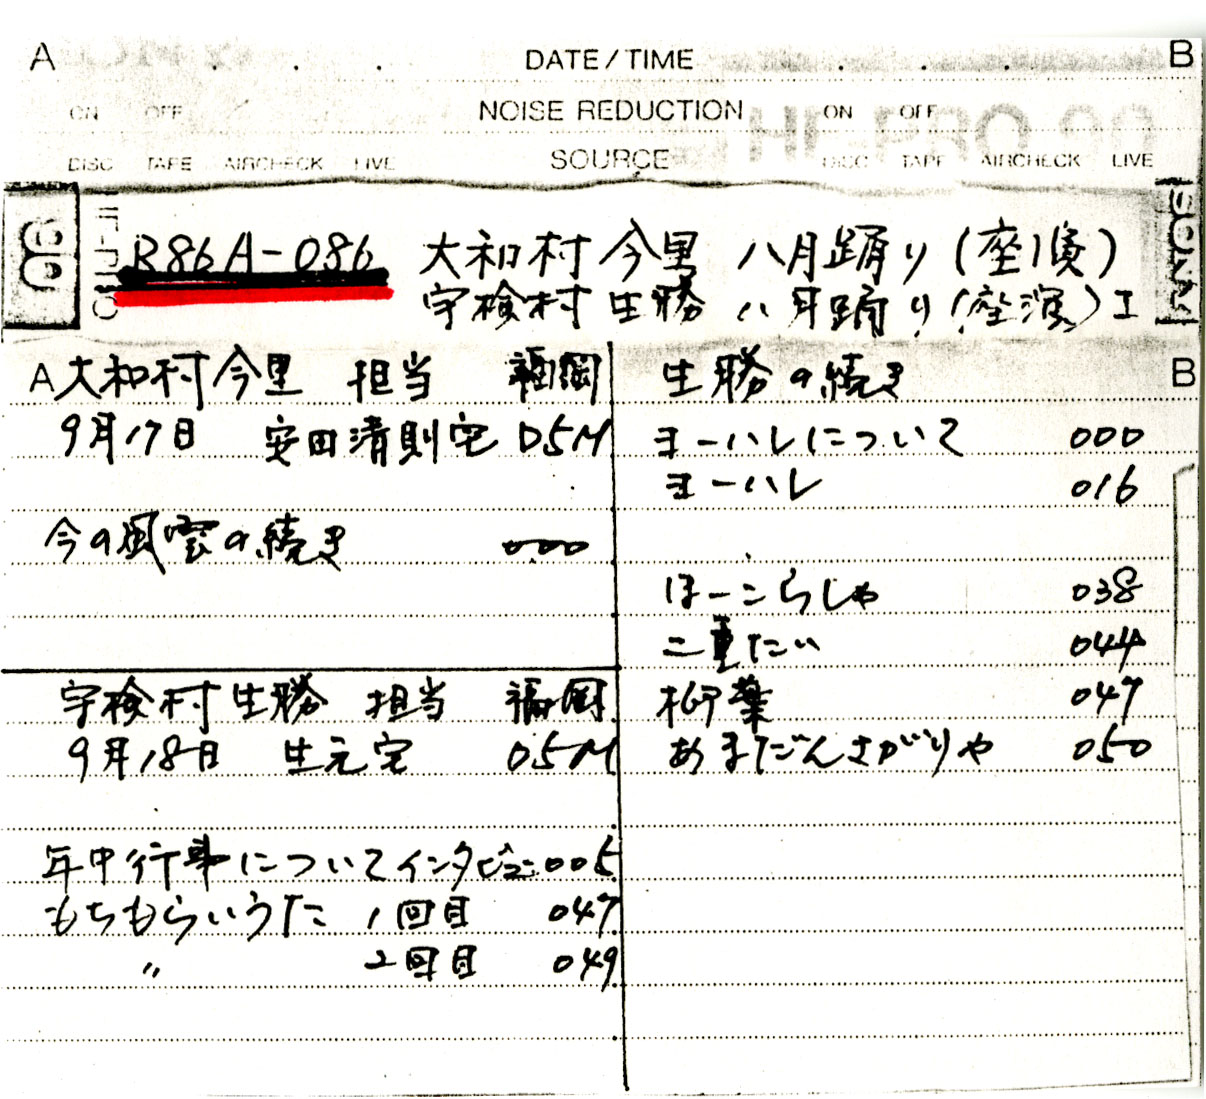 A DATE/TIME B
ON OFF NOISE REDUCTION ON OFF
DISC TAPE AIRCHECK LIVE SOURCE DISC TAPE AIRCHECK LIVE
90 HF-PRO SONY
R86A-086 大和村今里 八月踊り(座演)
宇検村生勝 八月踊り(座演)I
A 大和村今里 担当 福岡
9月17日 安田清則宅 D5M
今の風雲の続き 000
宇検村生勝 担当 福岡
9月18日 生元宅 D5M
年中行事についてインタビュー 005
もちもらいうた 1回目 047
〃 2回目 049
B
生勝の続き
ヨーハレについて 000
ヨーハレ 016
ほーこらしゃ 038
二重たい 044
柳葉 047
あまだんさがりや 050